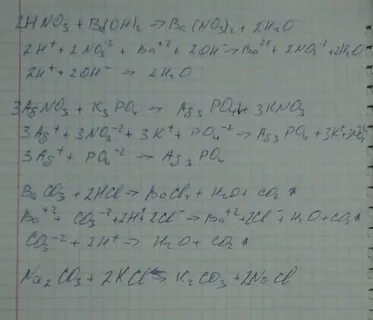 2HNO3 + Ba(OH)2 → Ba(NO3)2 + 2H2O
2H⁺ + 2NO3⁻² + Ba⁺² + 2OH⁻ → Ba²⁺ + 2NO3⁻² + 2H2O
2H⁺ + 2OH⁻ → 2H2O
3AgNO3 + K3PO4 → Ag3PO4 + 3KNO3
3Ag⁺ + 3NO3⁻² + 3K⁺ + PO4⁻² → Ag3PO4 + 3K⁺ + 3NO3⁻²
3Ag⁺ + PO4⁻² → Ag3PO4
BaCO3 + 2HCl → BaCl2 + H2O + CO2↑
Ba⁺² + CO3⁻² + 2H⁺ + 2Cl⁻ → Ba⁺² + 2Cl⁻ + H2O + CO2↑
CO3⁻² + 2H⁺ → H2O + CO2↑
Na2CO3 + 2KCl → K2CO3 + 2NaCl